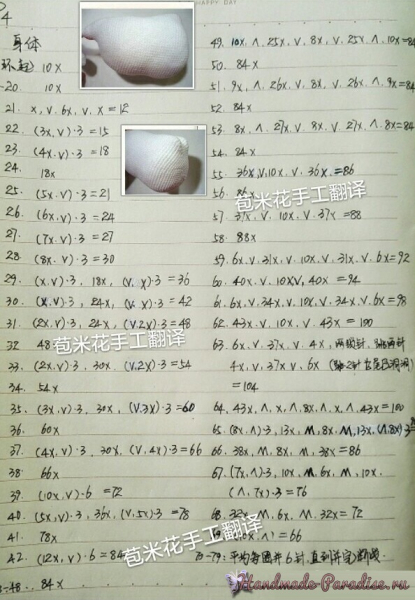 HAPPY DAY
4
身体
环起) 10x
-20 10x
21. x, v, 6x, v, x = 12
22. (3x, v)·3 = 15
23. (4x, v)·3 = 18
24. 18x
25. (5x, v)·3 = 21
26. (6x, v)·3 = 24
27. (7x, v)·3 = 27
28. (8x, v)·3 = 30
29. (x, v)·3, 18x, (v, x)·3 = 36
30. (x, v)·3, 24x, (v, x)·3 = 42
31. (2x, v)·3, 24x, (v, 2x)·3 = 48
32 48
33. (2x, v)·3, 30x, (v, 2x)·3 = 54
34. 54x
35. (3x, v)·3, 30x, (v, 3x)·3 = 60
36. 60x
37. (4x, v)·3, 30x, (v, 4x)·3 = 66
38. 66x
39. (10x, v)·6 = 72
40. (5x, v)·3, 36x, (v, 5x)·3 = 78
41. 78x
42. (12x, v)·6 = 84
3-48. 84x
49. 10x, ʌ, 25x, v, 8x, v, 25x, ʌ, 10x = 84
50. 84x
51. 9x, ʌ, 26x, v, 8x, v, 26x, ʌ, 9x = 84
52. 84x
53. 8x, ʌ, 27x, v, 8x, v, 27x, ʌ, 8x = 84
54. 84x
55. 36x, v, 10x, v, 36x = 86
56. 86x
57. 37x, v, 10x, v, 37x = 88
58. 88x
59. 6x, v, 31x, v, 10x, v, 31x, v, 6x = 92
60. 40x, v, 10x, v, 40x = 94
61. 6x, v, 34x, v, 10x, v, 34x, v, 6x = 98
62. 43x, v, 10x, v, 43x = 100
63. 6x, v, 37x, v, 4x, 两锁针, 跳两针
4x, v, 37x, v, 6x (跳2针
= 104
64. 43x, ʌ, x, ʌ, 8x, ʌ, x, ʌ, 43x = 100
65. (8x, ʌ)·3, 13x, M, 8x, M, 13x, (ʌ, 8x)·3 =
66. 38x, M, 8x, M, 38x = 86
67. (7x, ʌ)·3, 10x, M, 6x, M, 10x,
(ʌ, 7x)·3 = 76
68. 32x, M, 6x, M, 32x = 72
ʌ) = 66
70-79: 平均每圈并6针, 直到并完断线.
苞米花手工翻译
苞米花手工翻译
苞米花手工翻译
苞米花手工翻译
Handmade-Paradise.ru